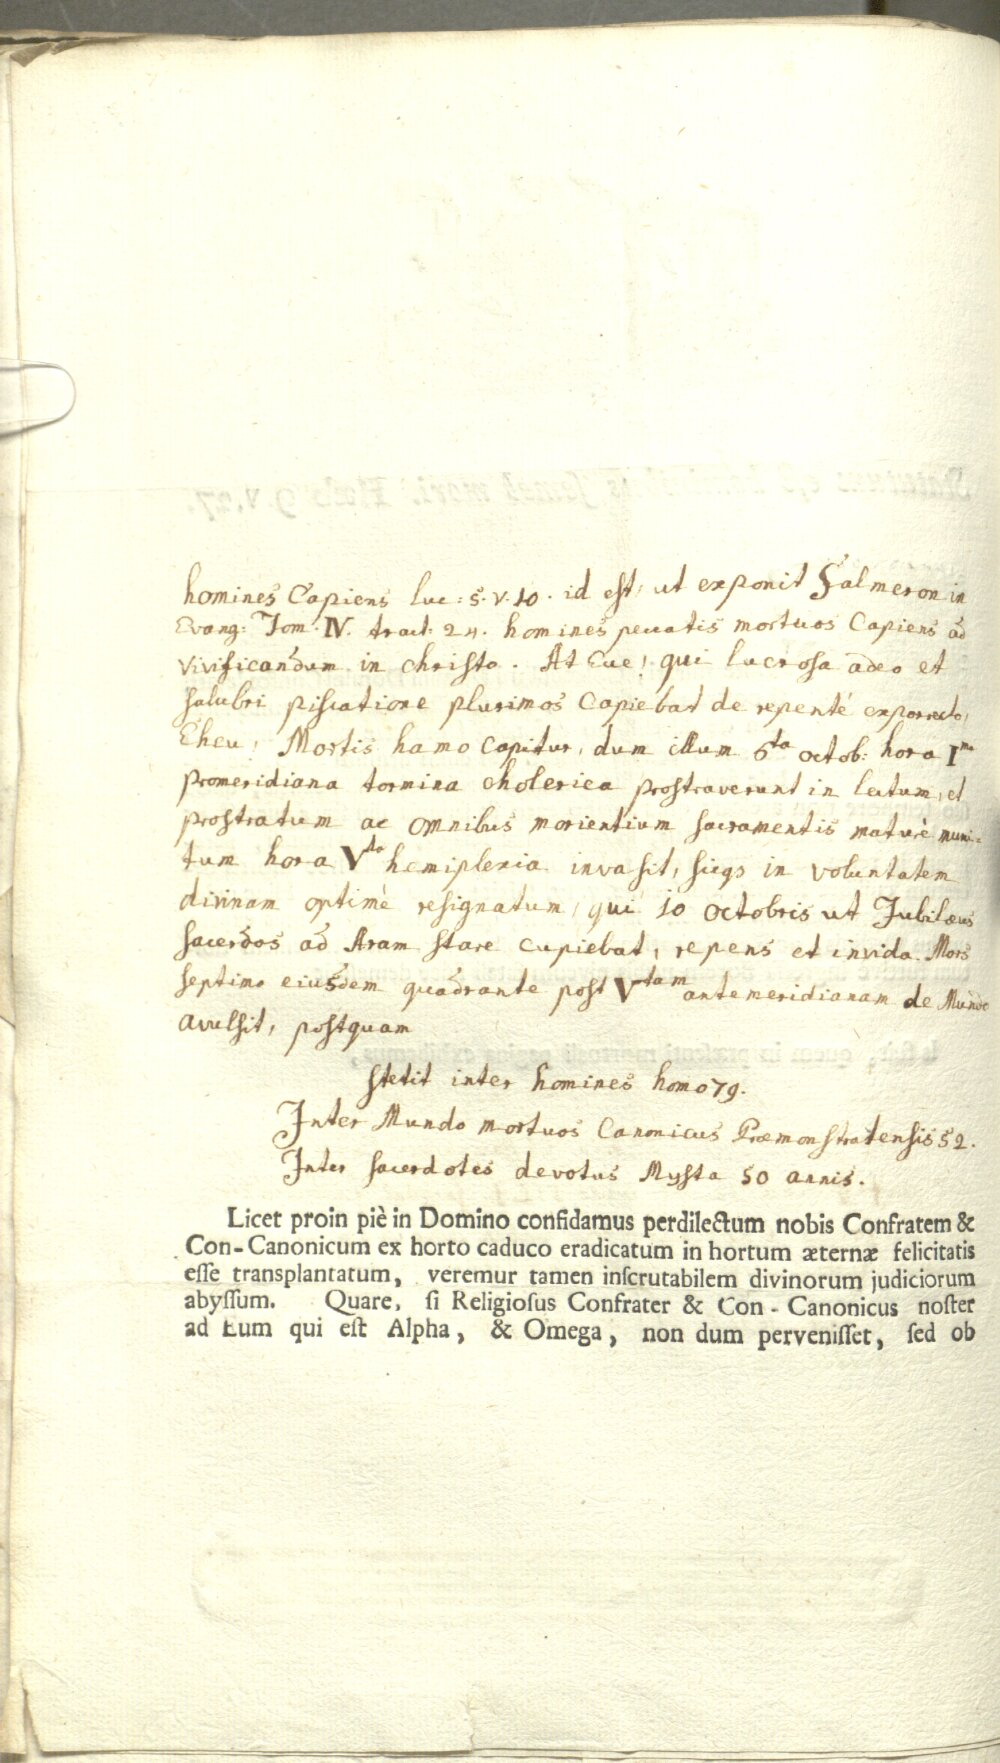 homines Capiens luc: 5. v. 10. id est, ut exponit Salmeron in
Evang: Tom. IV. tract: 24. homines peccatis mortuos Capiens ad
vivificandum in christo. At Eue! qui lucrosa adeo et
salubri piscatione plurimos Capiebat de repentè exporrecto,
Eheu! Mortis hamo capitur, dum illum 6ta octob: hora Ima
promeridiana tormina cholerica prostraverunt in lectum, et
prostratum ac omnibus morientium sacramentis maturè muni-
tum hora Vta hemiplexia invasit, sicqs in voluntatem
divinam optimè resignatum, qui 10 octobris ut Jubilæus
sacerdos ad Aram stare cupiebat, repens et invida Mors
septimo eiusdem quadrante post Vtam antemeridianam de Mundo
avulsit, postquam
stetit inter homines homo 79.
Inter Mundo mortuos Canonicus Præmonstratensis 52.
Inter sacerdotes devotus Mysta 50 annis.
Licet proin piè in Domino confidamus perdilectum nobis Confratem &
Con-Canonicum ex horto caduco eradicatum in hortum æternæ felicitatis
esse transplantatum, veremur tamen inscrutabilem divinorum judiciorum
abyssum. Quare, si Religiosus Confrater & Con-Canonicus noster
ad Eum qui est Alpha, & Omega, non dum pervenisset, sed ob